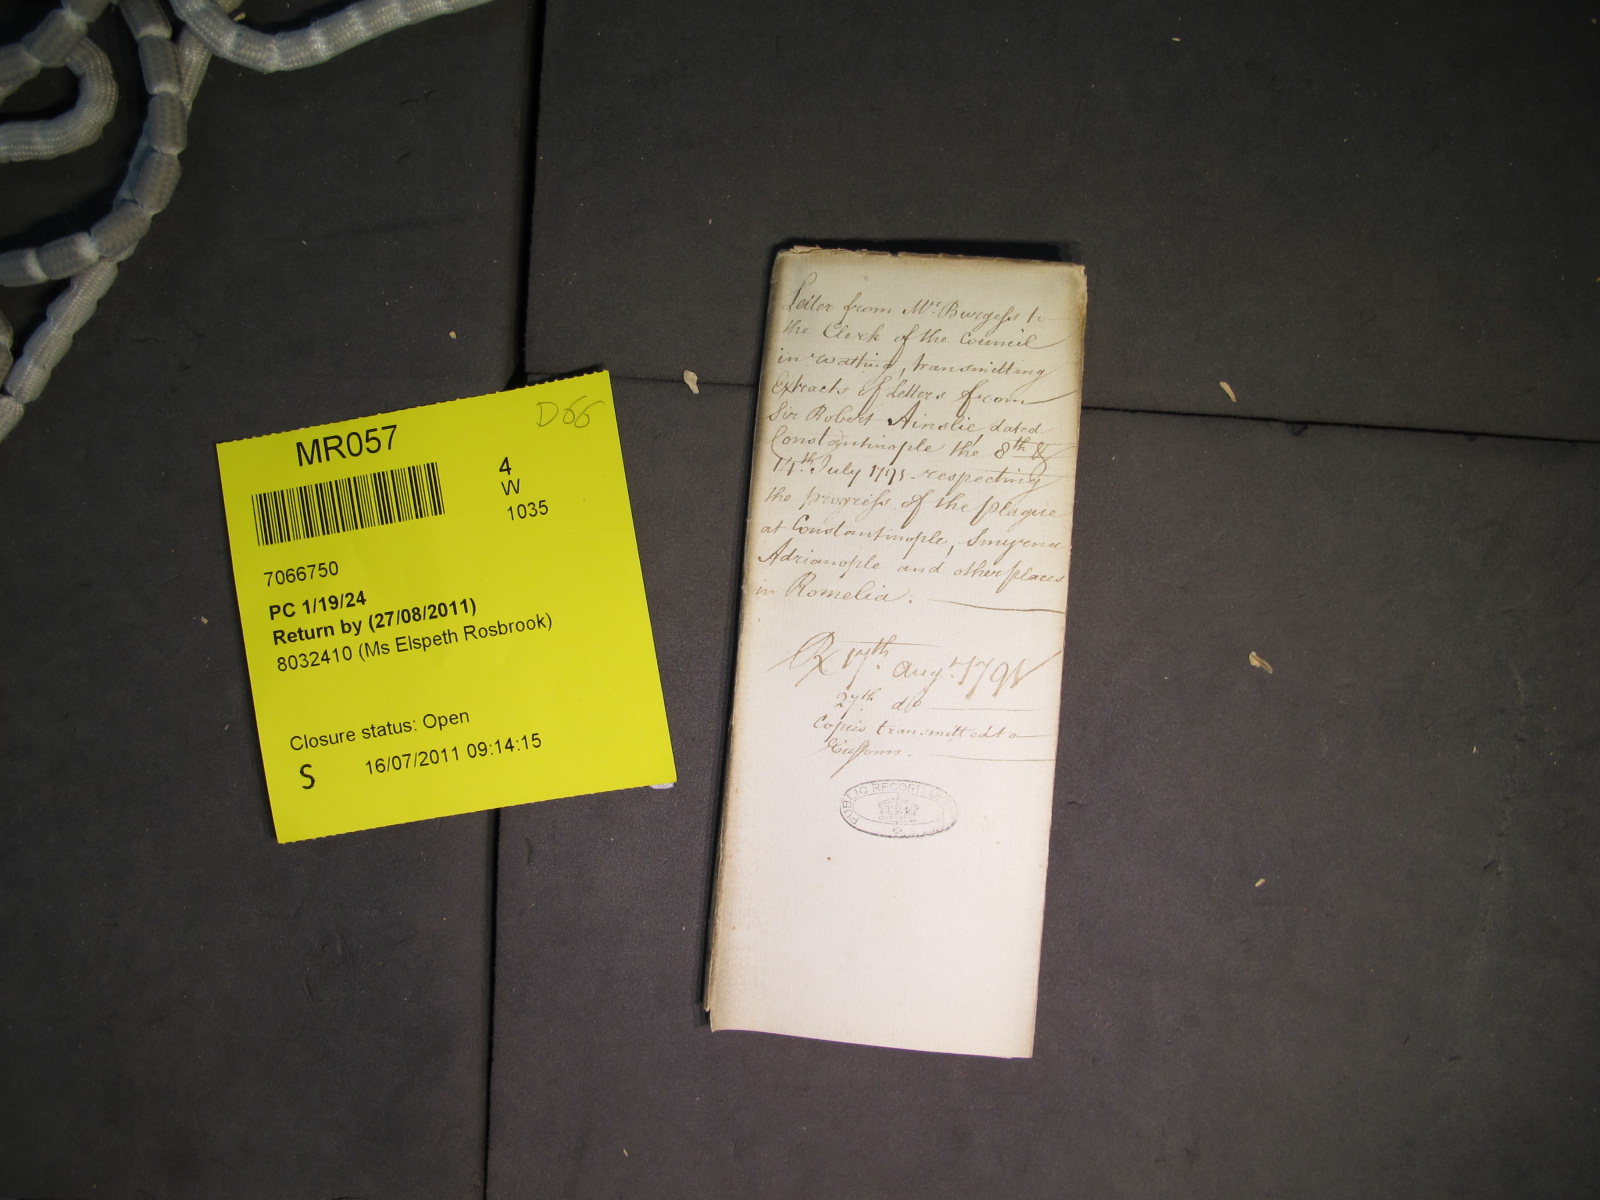 MR057
D66
4
W
1035
7066750
PC 1/19/24
Return by (27/08/2011)
8032410 (Ms Elspeth Rosbrook)
Closure status: Open
S 16/07/2011 09:14:15
Letter from Mr. Burgess to
the Clerk of the Council
in waiting, transmitting
Extracts of Letters from
Sir Robert Ainslie, dated
Constantinople the 8th &
14th July 1791 respecting
the progress of the plague
at Constantinople, Smyrna
Adrianople and other places
in Romelia.
Rx 17th Augt. 1791
27th do
Copies transmitted to
Customs.
PUBLIC RECORD